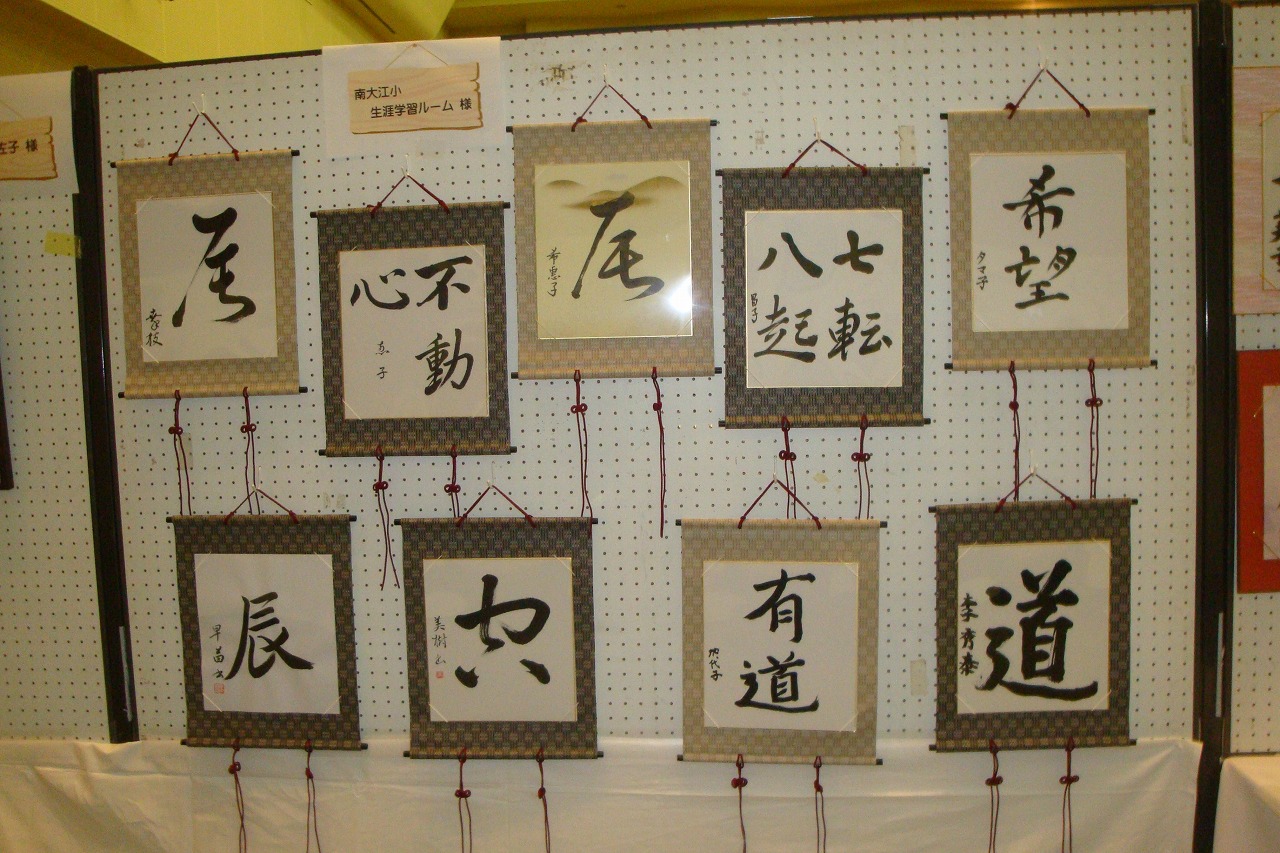 佐子 様
南大江小
生涯学習ルーム 様
辰
幸枝
不動
心
恵子
辰
希恵子
七転
八起
昌子
希望
タマ子
辰
早苗書
寅
美樹書
有道
加代子
道
李秀泰